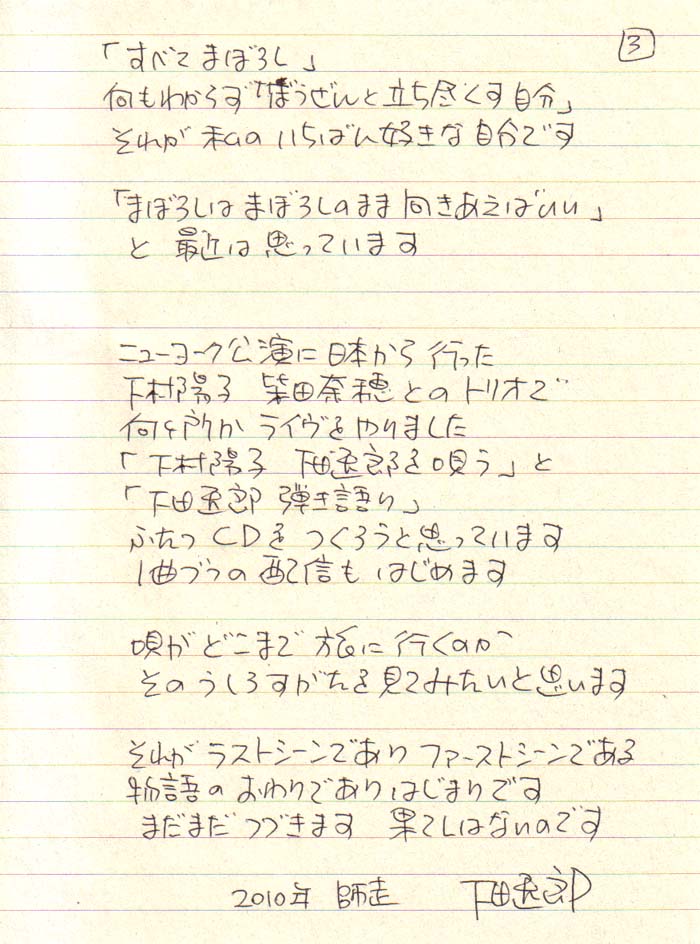 3
「すべてまぼろし」
何もわからず「ぼうぜんと立ち尽くす自分」
それが 私の いちばん好きな自分です
「まぼろしは まぼろしのまま 向きあえばいい」
と 最近は思っています
ニューヨーク公演に日本から行った
下村陽子 柴田奈穂とのトリオで
何ヶ所か ライヴをやりました
「下村陽子 下田逸郎を唄う」と
「下田逸郎 弾き語り」
ふたつ CDを つくろうと思っています
1曲づつの配信も はじめます
唄が どこまで 旅に行くのか
そのうしろすがたを見てみたいと思います
それが ラストシーンであり ファーストシーンである
物語の おわりであり はじまりです
まだまだ つづきます 果てしはないのです
2010年 師走 下田逸郎